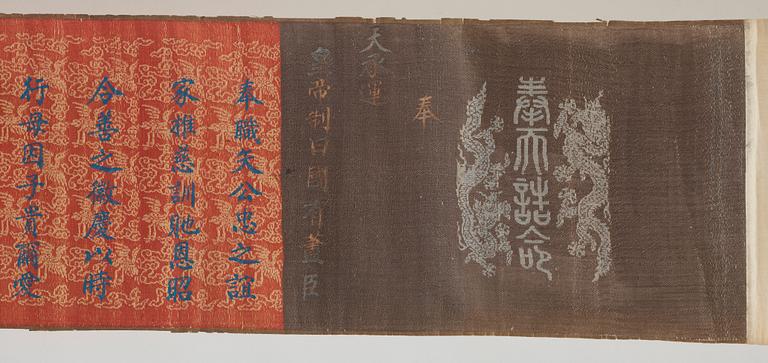 奉天誥命
奉
天承運
皇帝制曰國有藎臣
奉職矢公忠之誼
家推慈訓貤恩昭
令善之徽慶以時
行母因子貴爾愛